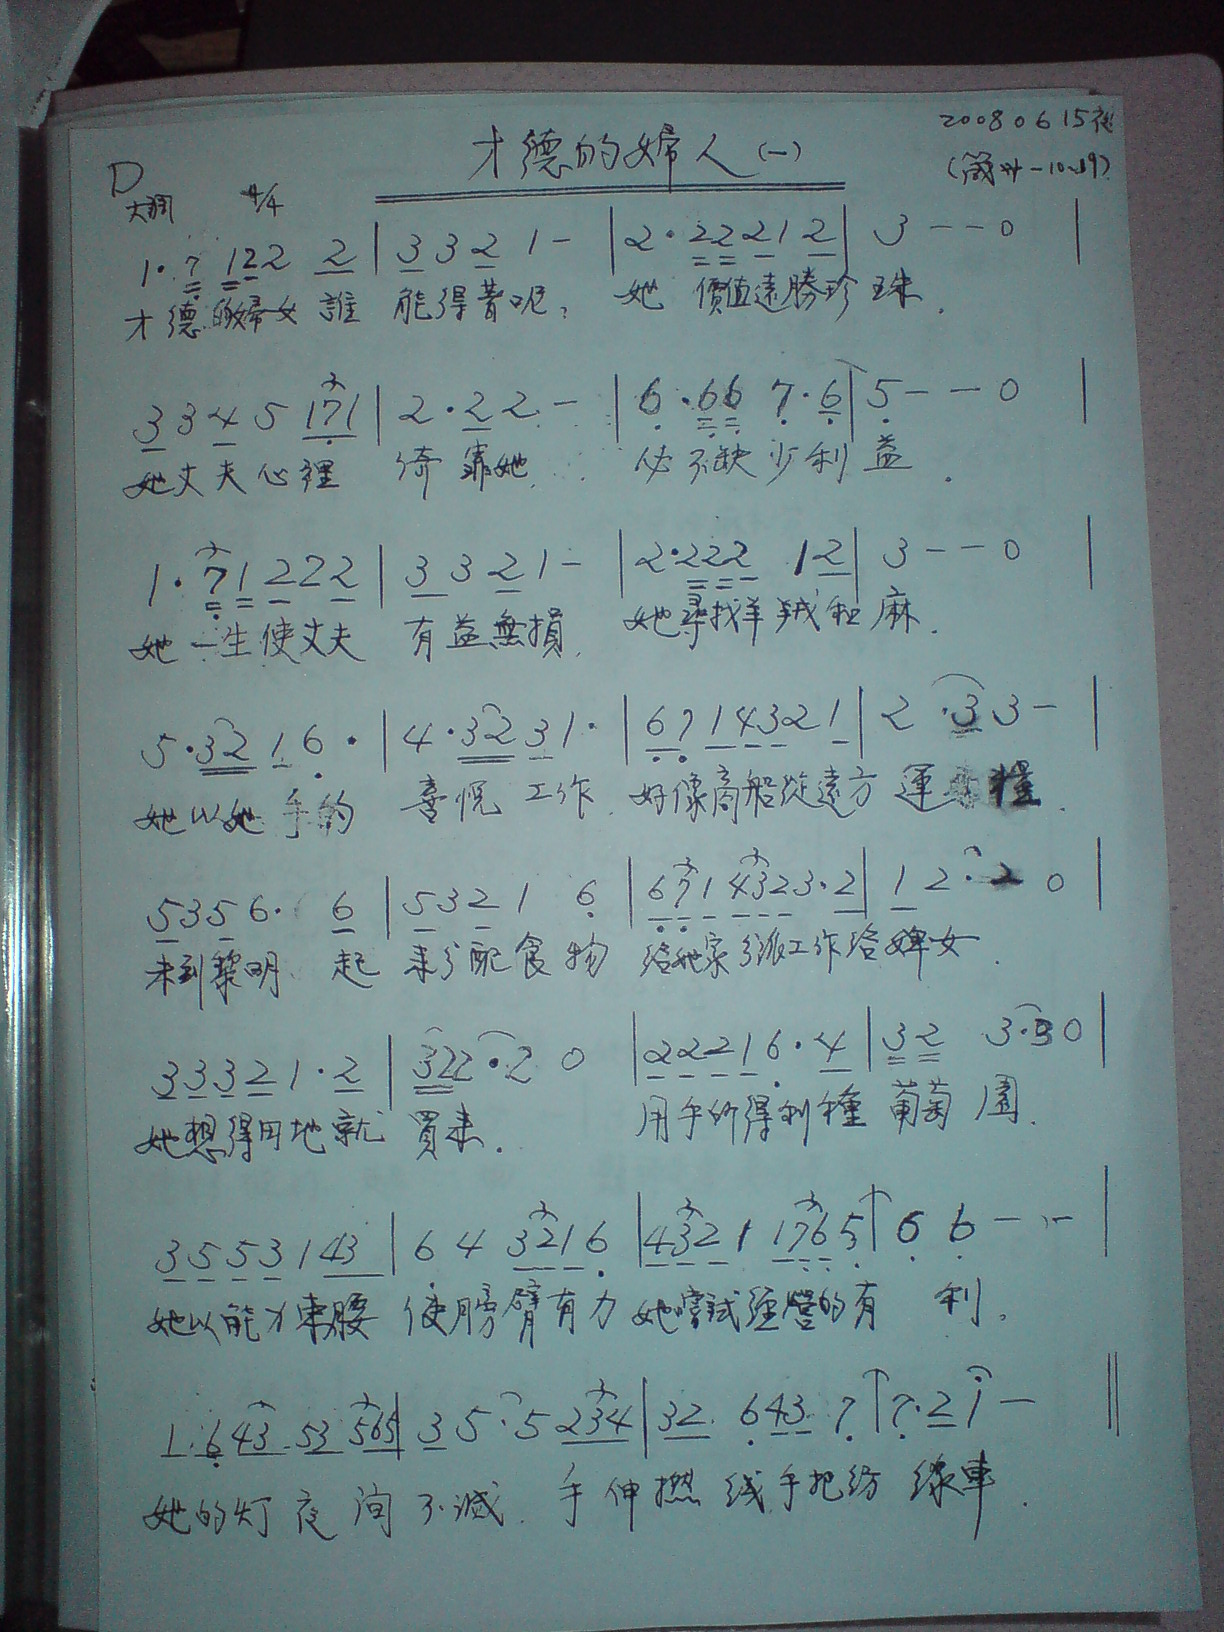 20080615夜
才德的婦人(一)
(箴卅一10-19)
D大調 4/4
1·7 122 2 | 3 3 2 1 - | 2·22 2 1 2 | 3 - - 0 |
才德的婦女誰 能得着呢, 她 價值遠勝珍珠.
3 3 4 5 171 | 2·2 2 - | 6·66 7·6 | 5 - - 0 |
她丈夫心裡 倚靠她. 必不缺少利益.
1·71 2 2 2 | 3 3 2 1 - | 2·222 12 | 3 - - 0 |
她一生使丈夫 有益無損. 她尋找羊羢和麻.
5·32 1 6· | 4·32 3 1· | 6 7 1 4 3 2 1 | 2·3 3 - |
她以她手的 喜悅工作. 好像商船從遠方運糧.
5 3 5 6· 6 | 5 3 2 1 6 | 6 7 1 4 3 2 3·2 | 1 2·2 0 |
未到黎明 起 來分配食物 給她家分派工作給婢女.
3 3 3 2 1·2 | 322·2 0 | 2 2 2 1 6·4 | 3 2 3·3 0 |
她想得田地就 買來. 用手所得利種 葡萄園.
3 5 5 3 1 43 | 6 4 3 2 1 6 | 4 3 2 1 1 7 6 5 | 6 6 - - |
她以能才束腰 使膀臂有力 她嚐試經營的有 利.
1·6 43 53 565 | 3 5·5 234 | 32 6 43 7 | 7·2 1 - ‖
她的灯夜间不滅. 手伸撚 线手把紡 線車.